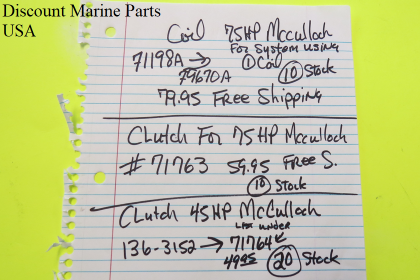 Discount Marine Parts
USA
Coil 75HP McCulloch
For System Using
71198A → ① Coil
79670A ⑩ Stock
79.95 Free Shipping
Clutch For 75HP McCulloch
# 71763 59.95 Free S.
⑩ Stock
Clutch 45HP McCulloch
List under
136-3152 → 71764
49.95 ⑳ Stock